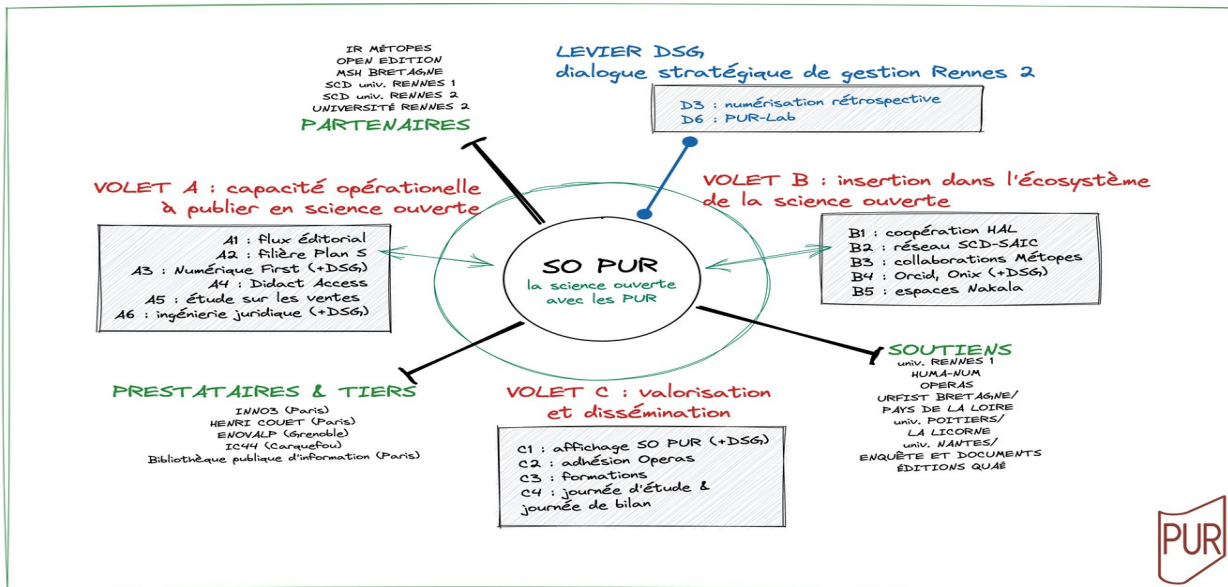 IR MÉTOPES
OPEN EDITION
MSH BRETAGNE
SCD univ. RENNES 1
SCD univ. RENNES 2
UNIVERSITÉ RENNES 2
PARTENAIRES
LEVIER DSG
dialogue stratégique de gestion Rennes 2
D3 : numérisation rétrospective
D6 : PUR-Lab
VOLET A : capacité opérationelle
à publier en science ouverte
A1 : flux éditorial
A2 : filière Plan S
A3 : Numérique First (+DSG)
A4 : Didact Access
A5 : étude sur les ventes
A6 : ingénierie juridique (+DSG)
SO PUR
la science ouverte
avec les PUR
VOLET B : insertion dans l'écosystème
de la science ouverte
B1 : coopération HAL
B2 : réseau SCD-SAIC
B3 : collaborations Métopes
B4 : Orcid, Onix (+DSG)
B5 : espaces Nakala
PRESTATAIRES & TIERS
INNO3 (Paris)
HENRI COUET (Paris)
ENOVALP (Grenoble)
IC44 (Carquefou)
Bibliothèque publique d'information (Paris)
VOLET C : valorisation
et dissémination
C1 : affichage SO PUR (+DSG)
C2 : adhésion Operas
C3 : formations
C4 : journée d'étude &
journée de bilan
SOUTIENS
univ. RENNES 1
HUMA-NUM
OPERAS
URFIST BRETAGNE/
PAYS DE LA LOIRE
univ. POITIERS/
LA LICORNE
univ. NANTES/
ENQUÊTE ET DOCUMENTS
ÉDITIONS QUAÉ
PUR